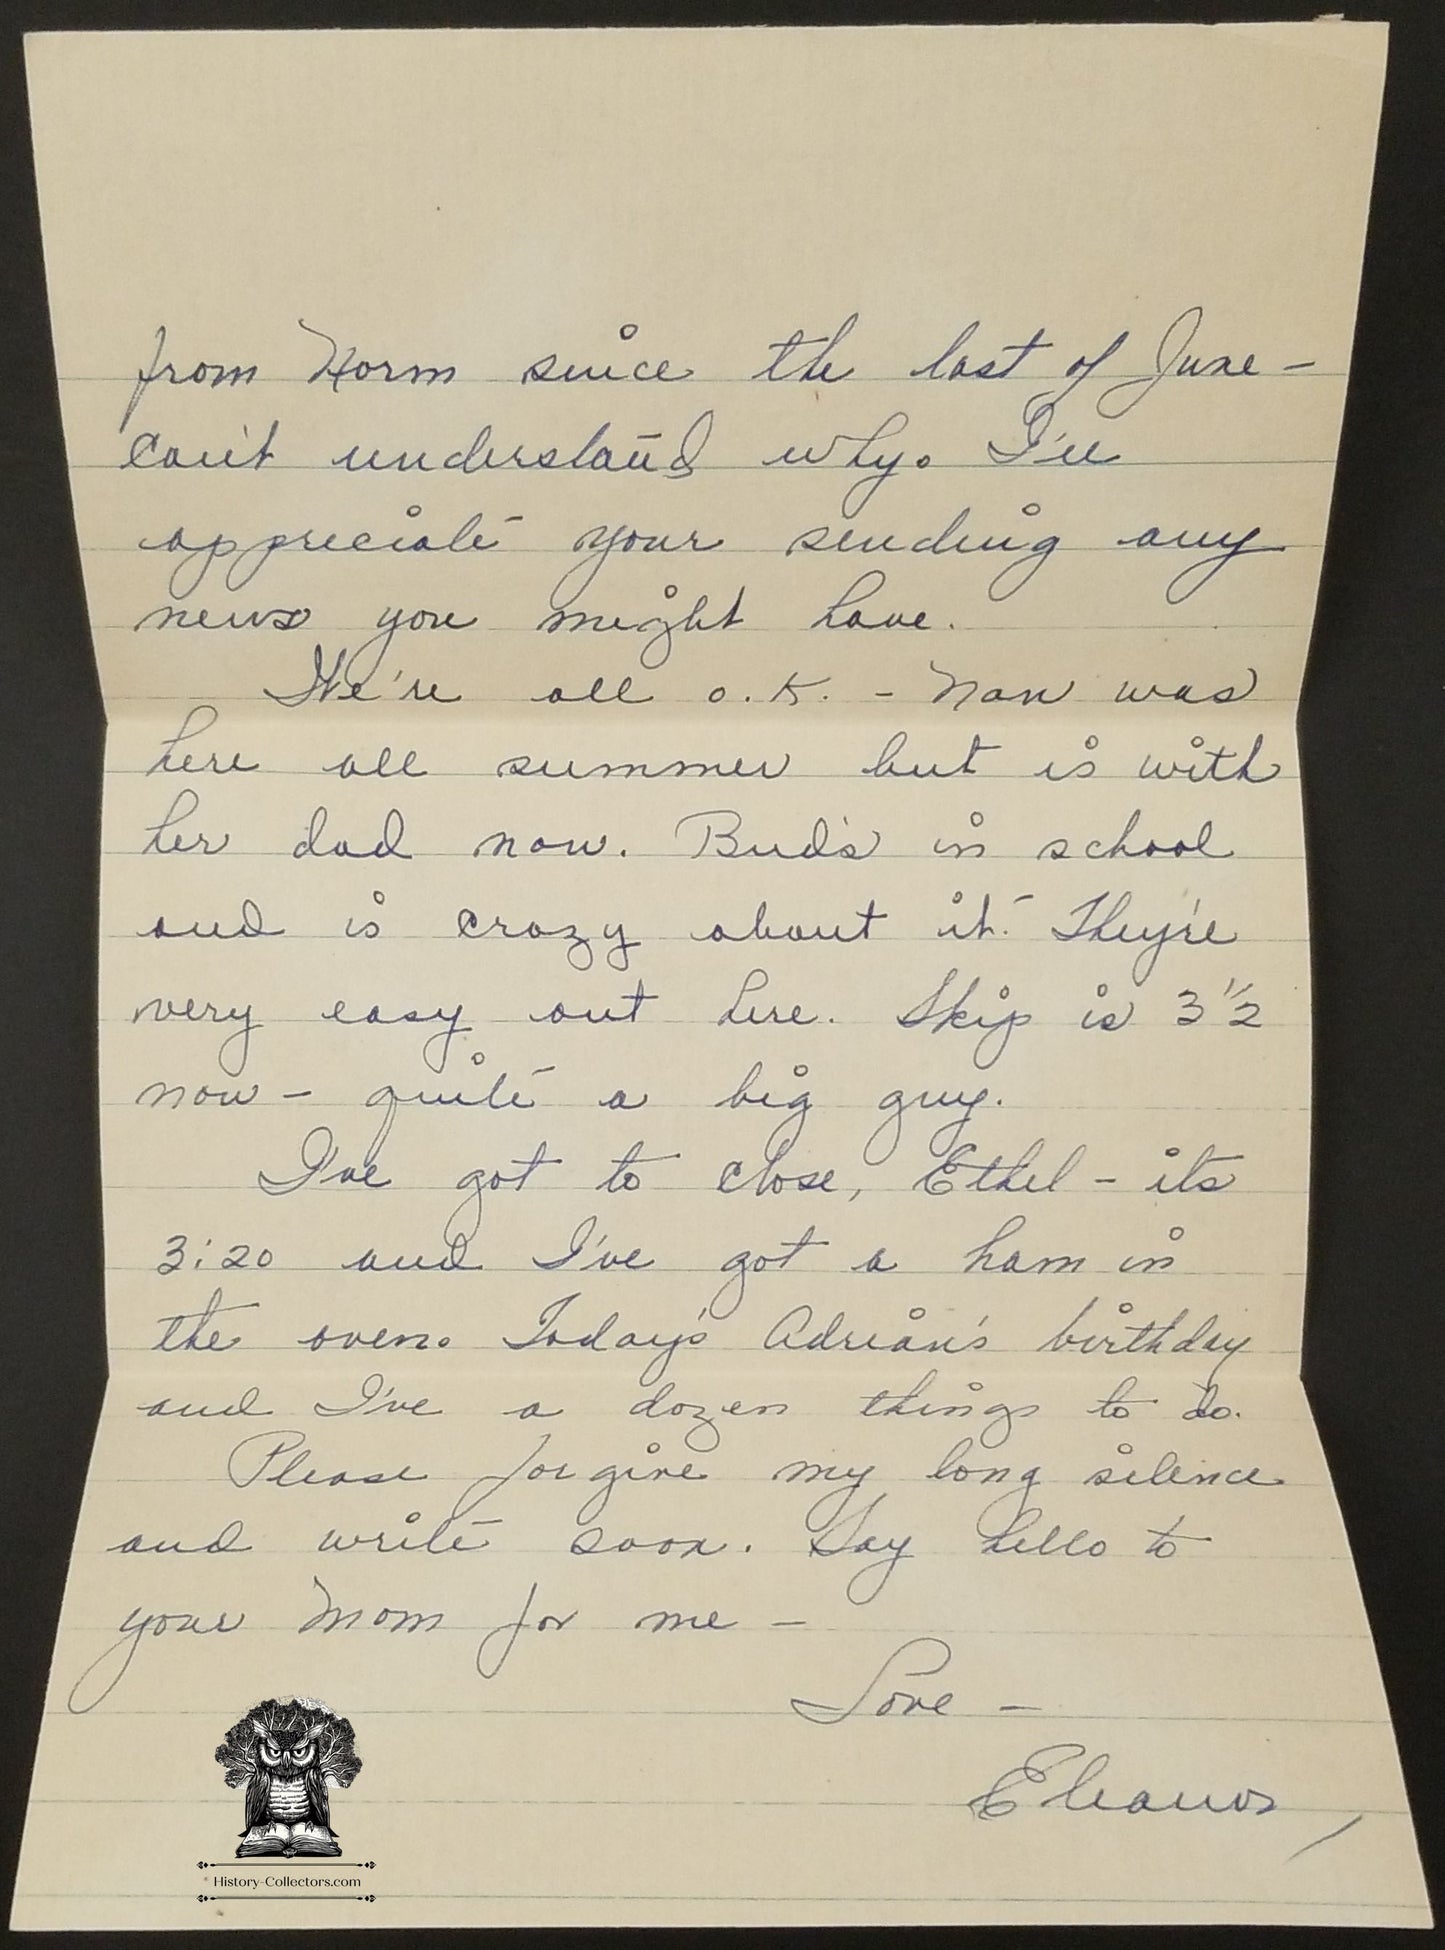 from Norm since the last of June –
can't understand why. I'll
appreciate your sending any
news you might have.
We're all o.k. – Nan was
here all summer but is with
her dad now. Bud's in school
and is crazy about it. They're
very easy out here. Skip is 3 1/2
now – quite a big guy.
I've got to close, Ethel – its
3:20 and I've got a ham in
the oven. Today's Adrian's birthday
and I've a dozen things to do.
Please forgive my long silence
and write soon. Say hello to
your Mom for me –
Love –
Eleanor
History-Collectors.com